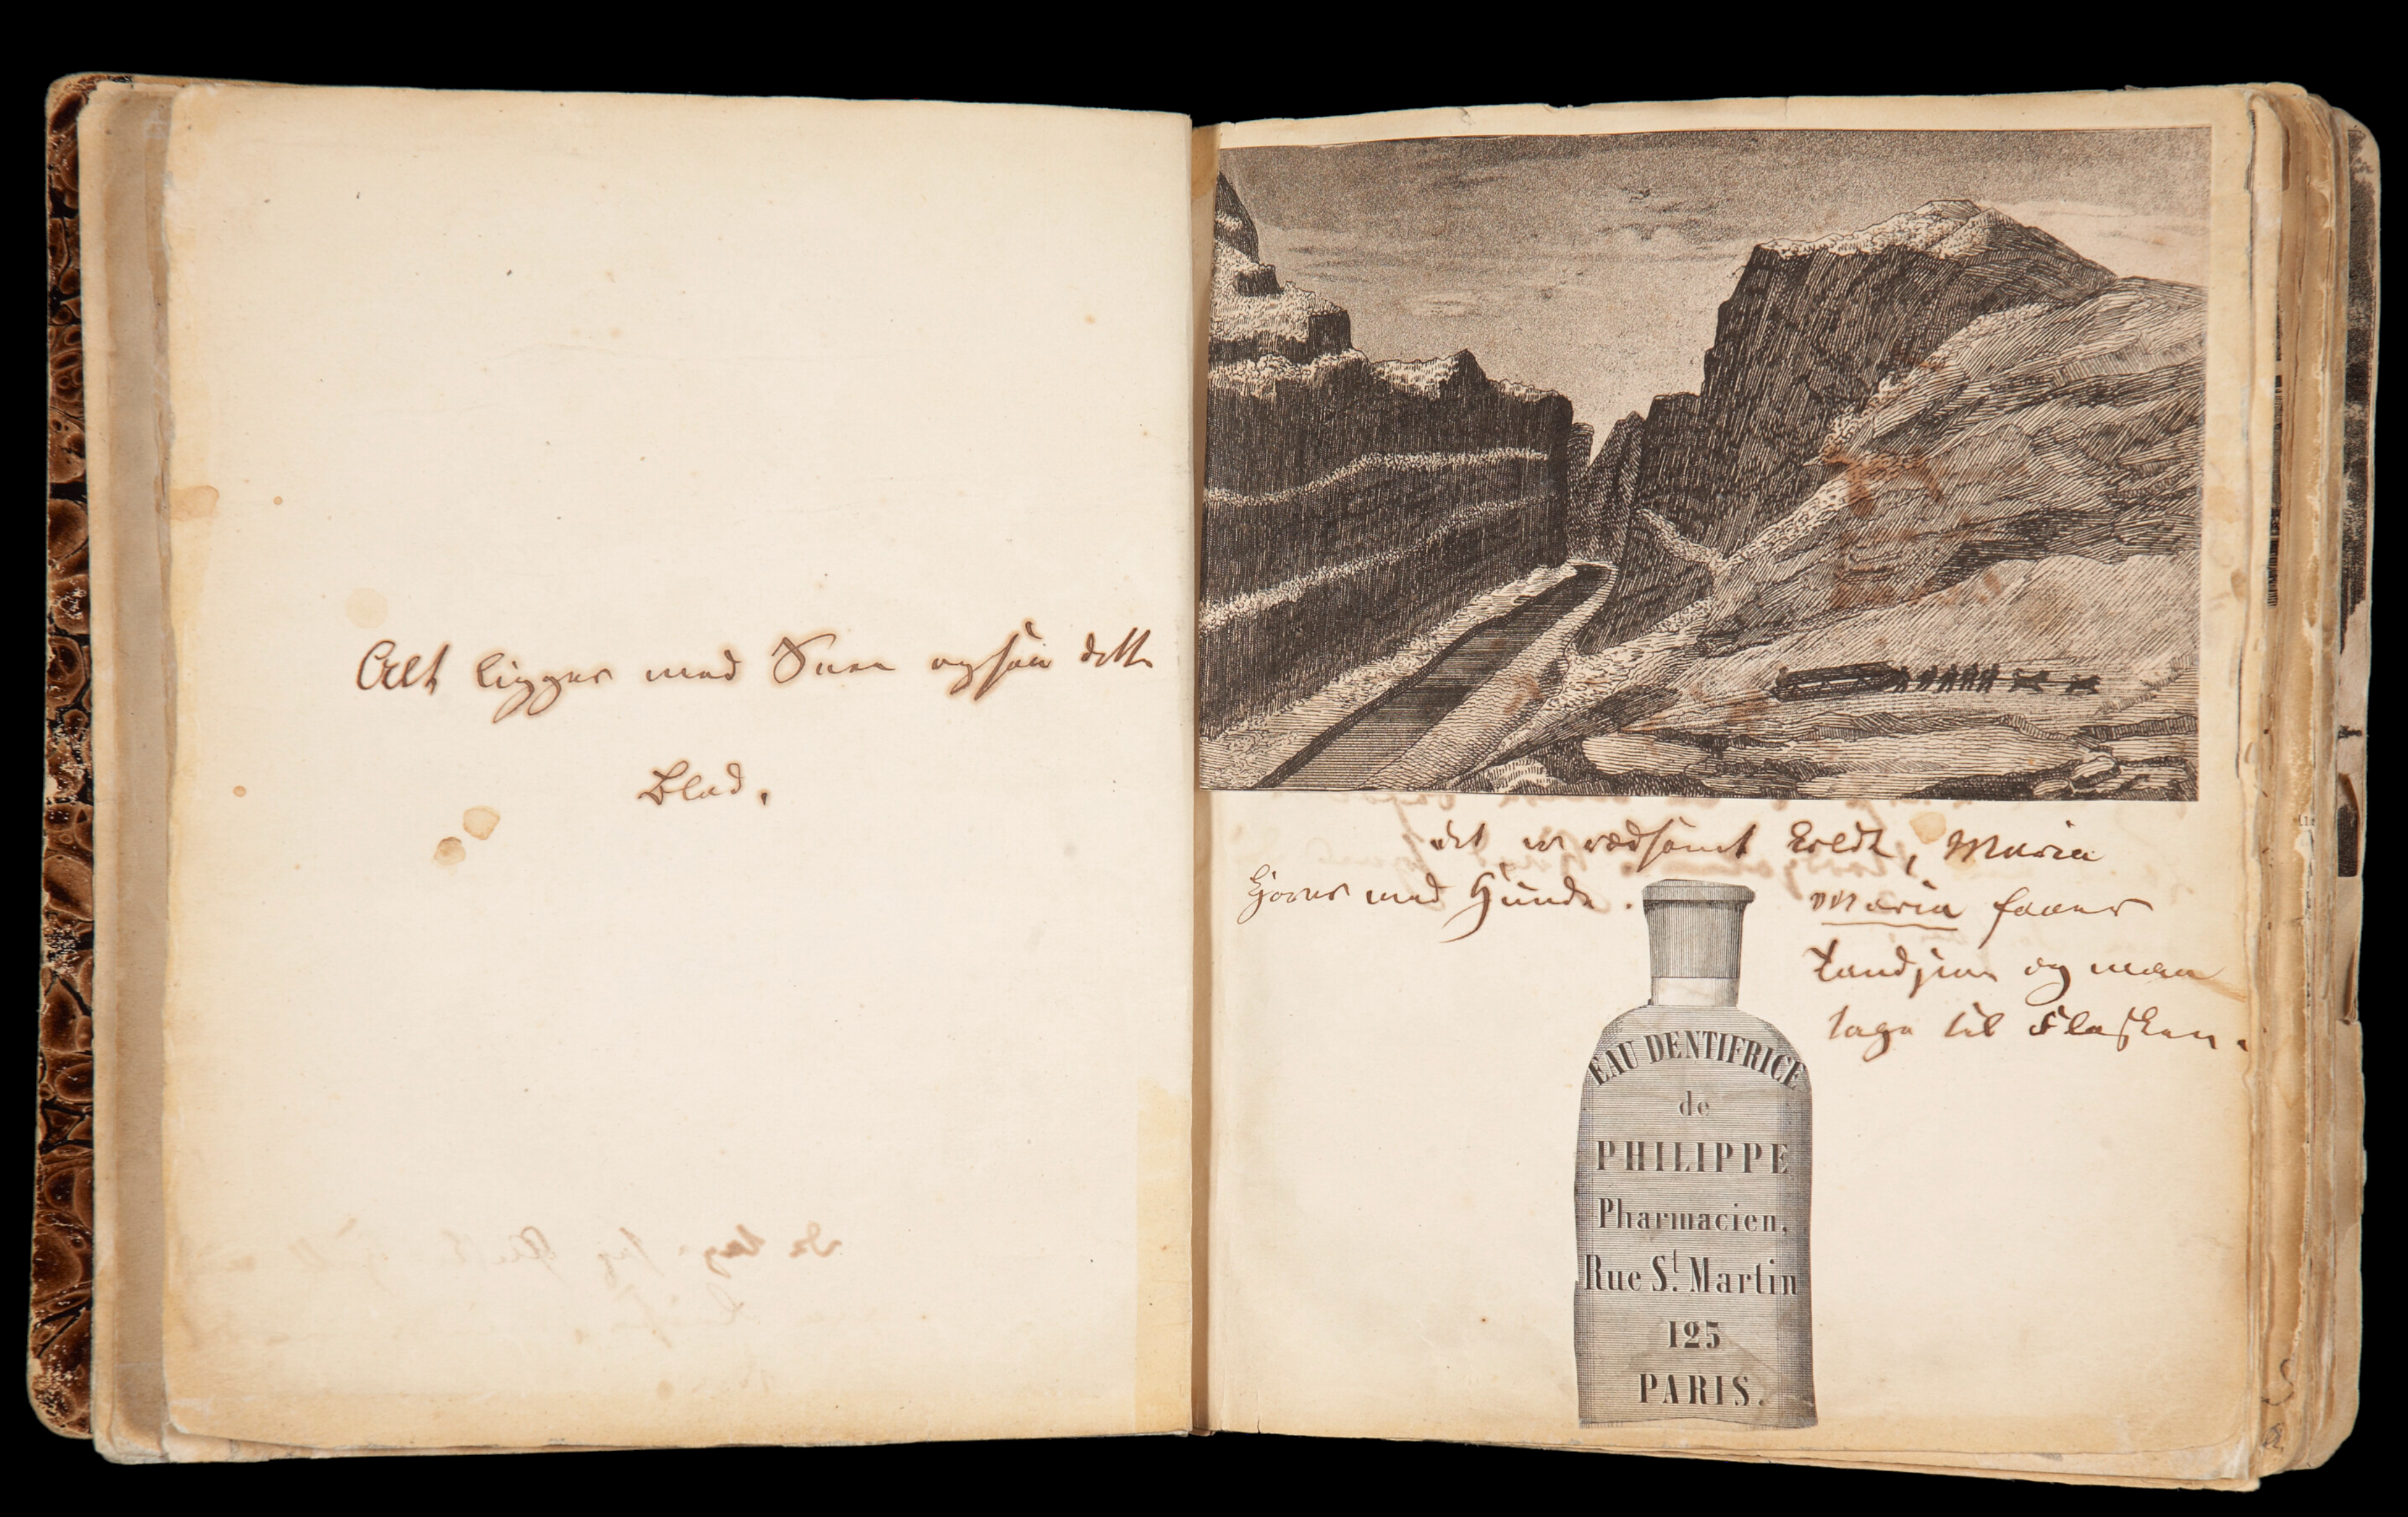 Alt ligger med Snee ogsaa dette
Blad.
det er rædsomt koldt, Maria
kjører med Hunde.
Maria faaer
Tandpine og man
tage til Flasken.
EAU DENTIFRICE
de
PHILIPPE
Pharmacien,
Rue St. Martin
125
PARIS.